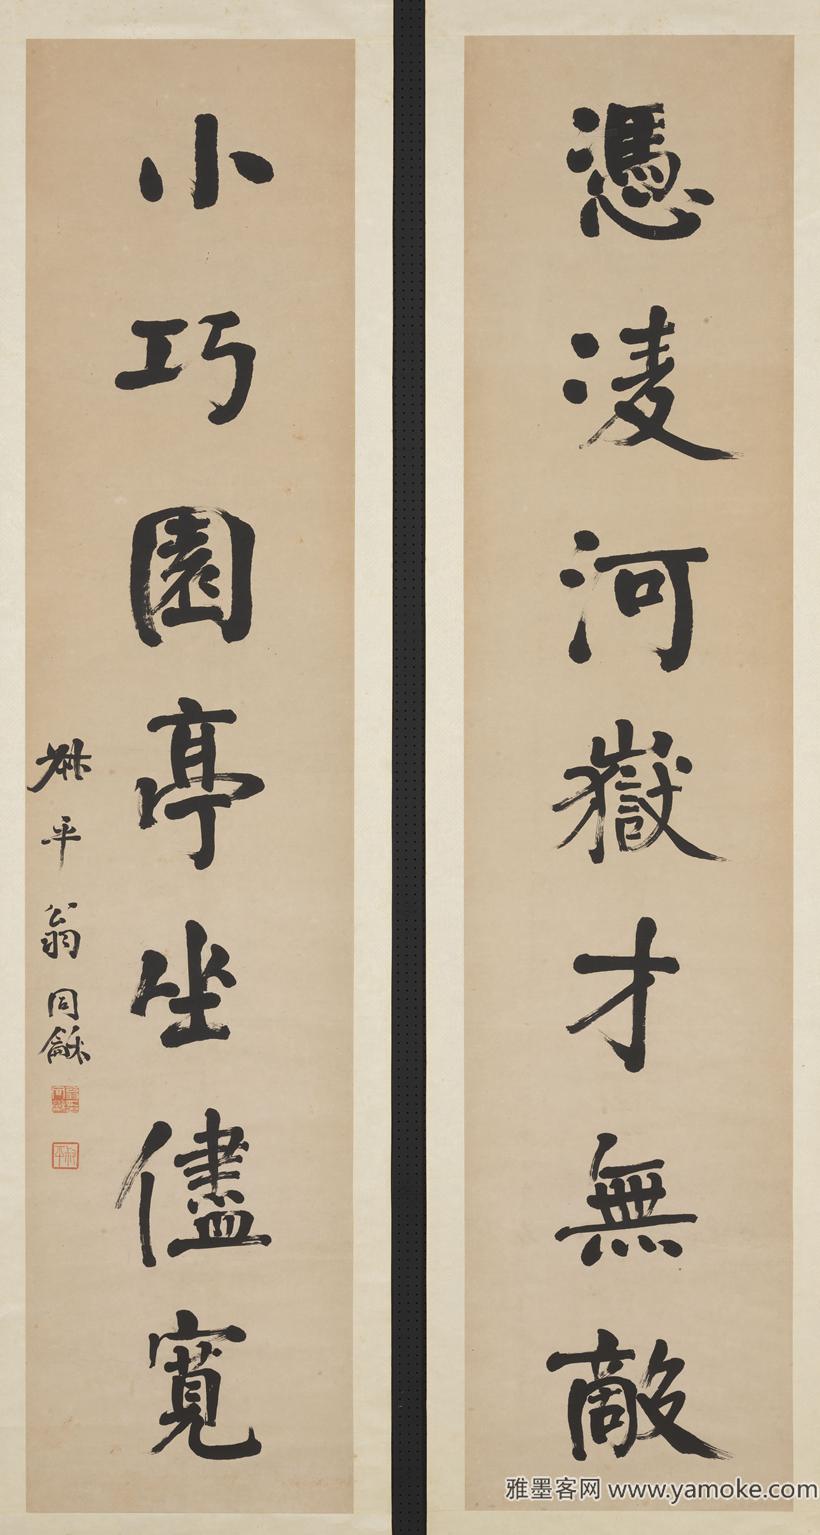 憑淩河嶽才無敵
小巧園亭坐儘寬
叔平翁同龢
雅墨客网 www.yamoke.com